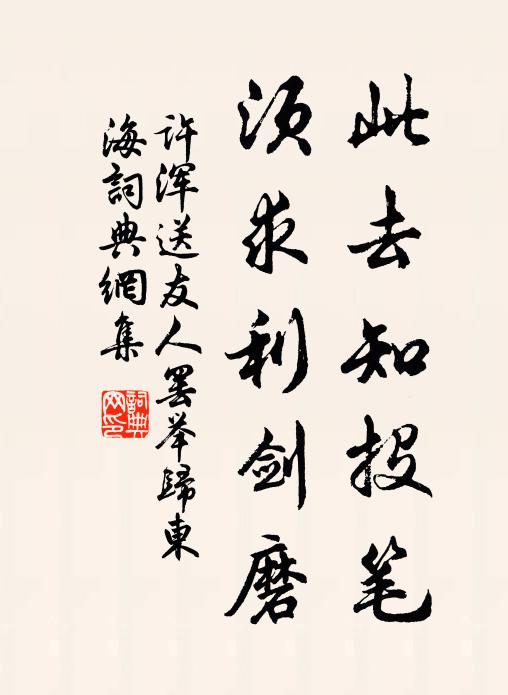 此去知投笔
须求利剑磨
许浑送友人罢举歸東
海詞典網集
詞典网印